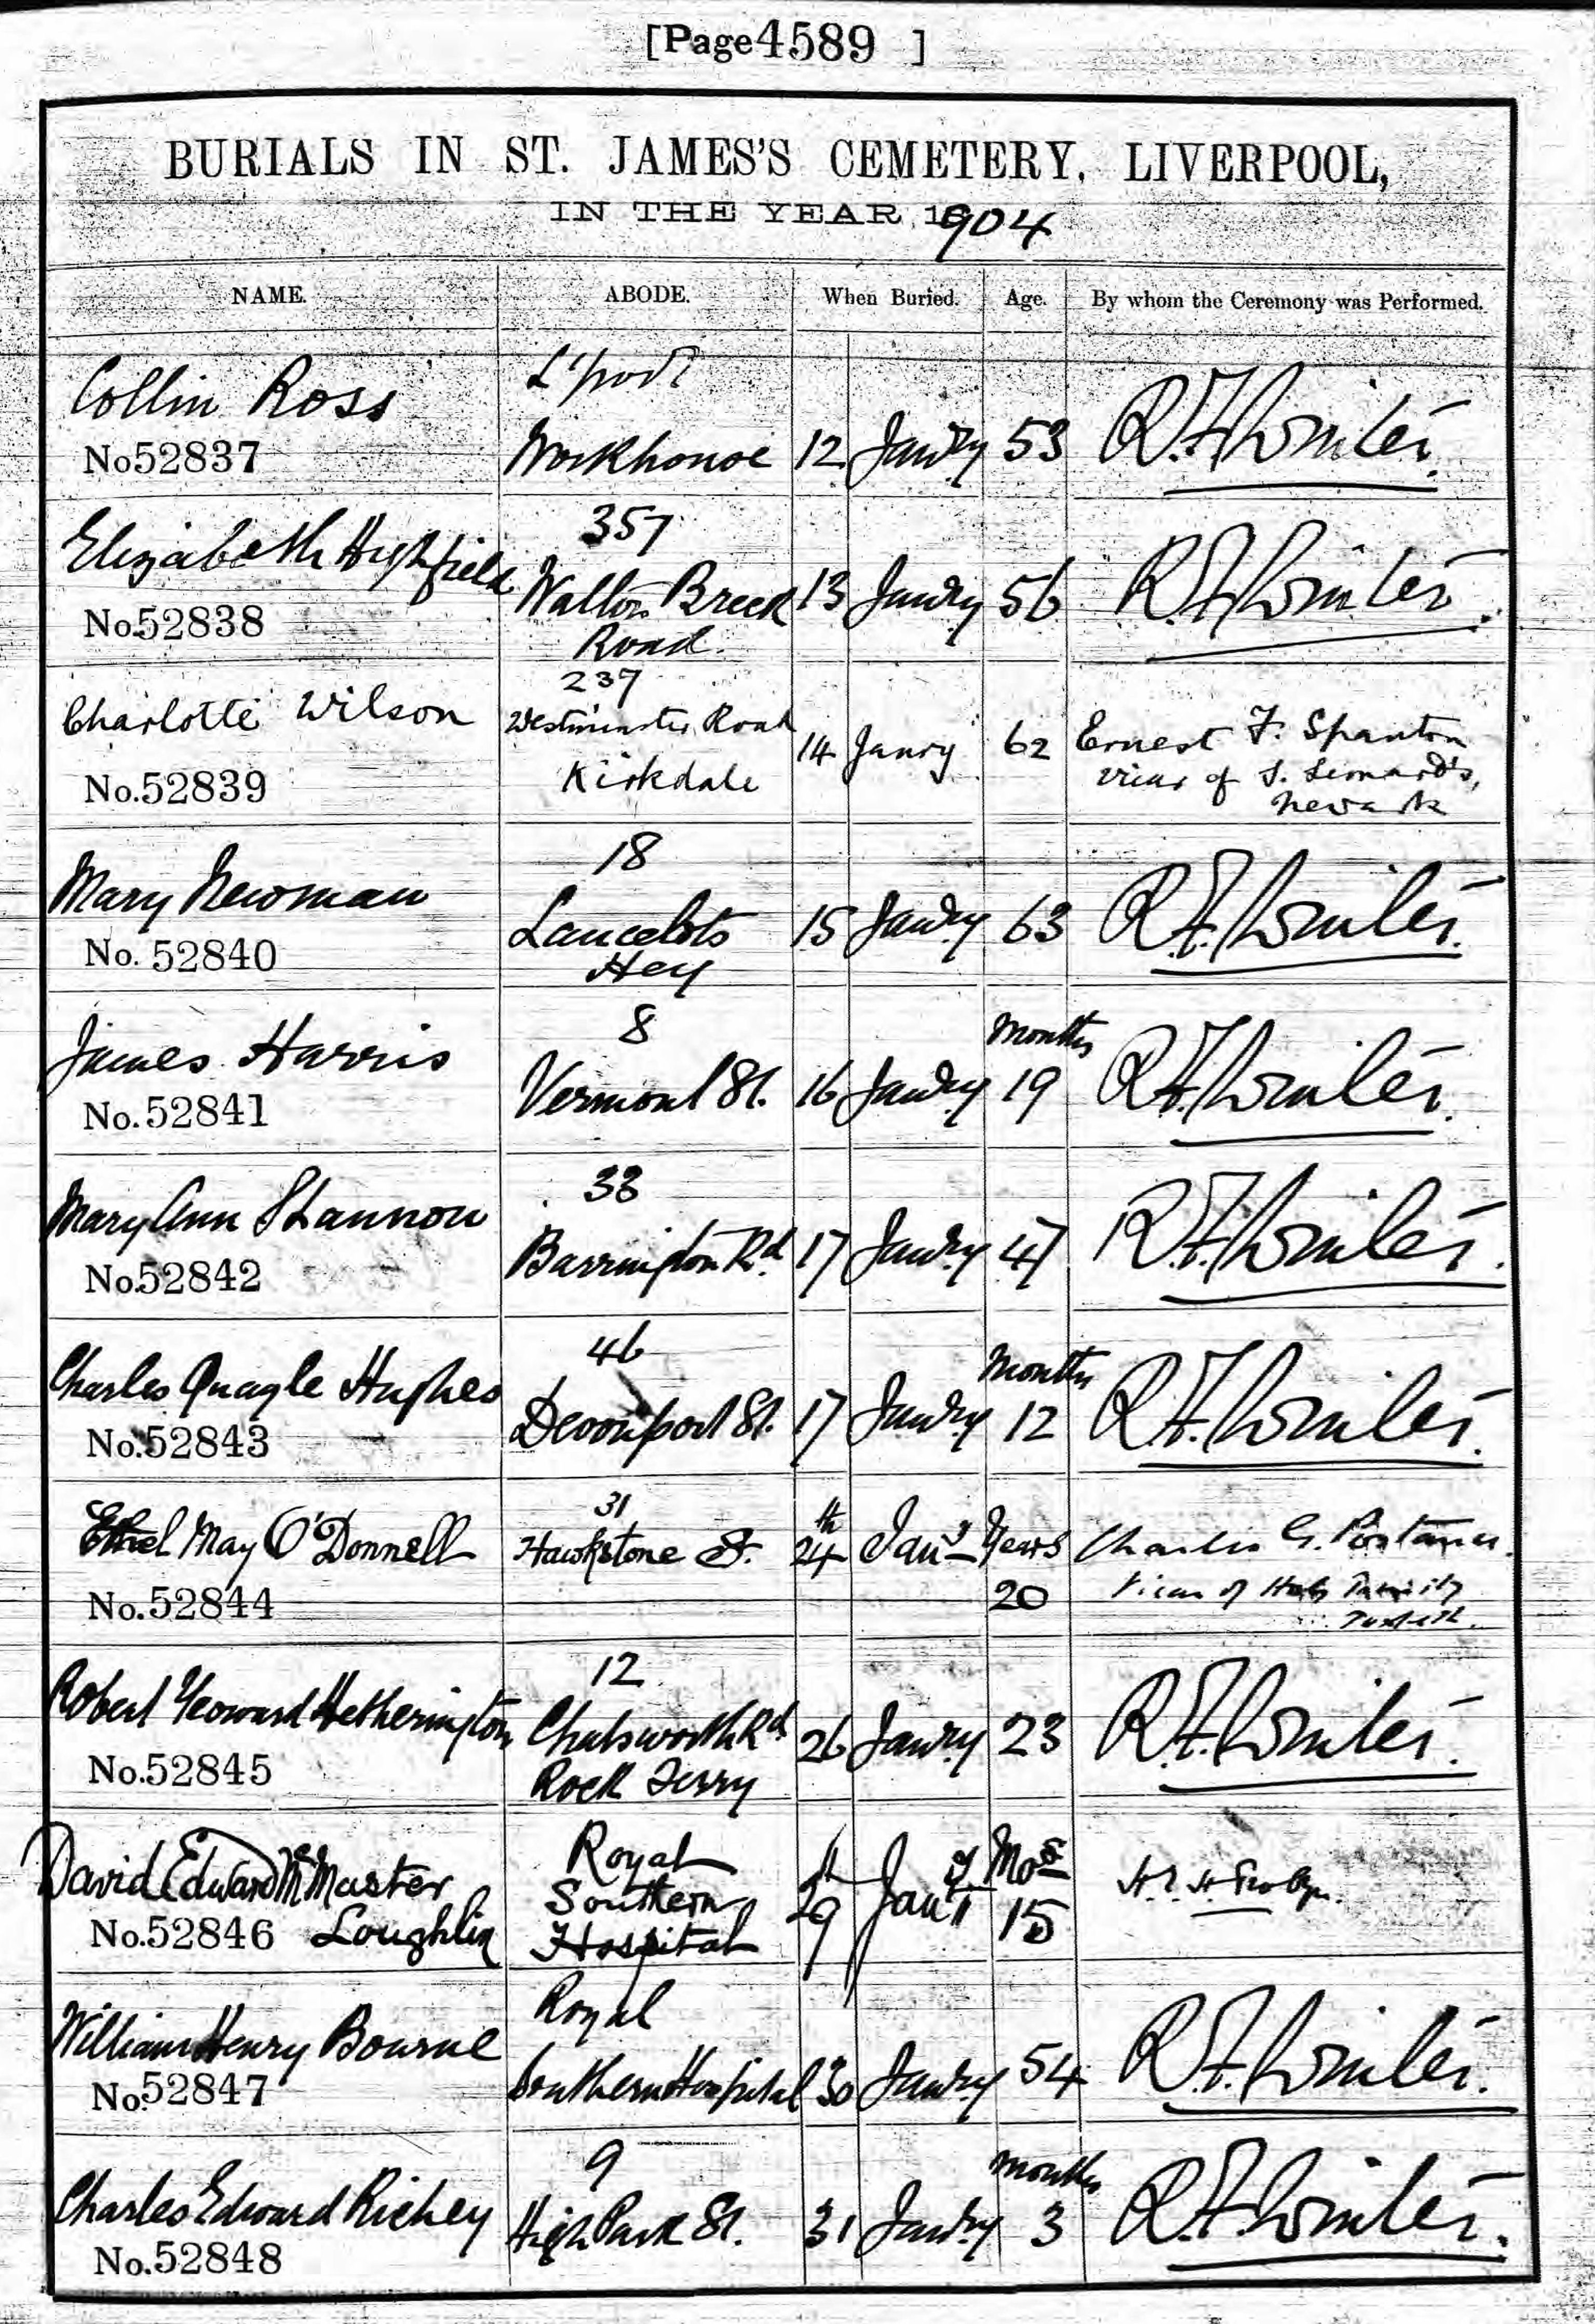 [Page 4589 ]
BURIALS IN ST. JAMES'S CEMETERY, LIVERPOOL,
IN THE YEAR 1904
NAME. ABODE. When Buried. Age. By whom the Ceremony was Performed.
Collin Ross
No 52837
L'pool
Workhouse 12 Janry 53 R.F. Winter
Elizabeth Highfield
No. 52838
357
Walton Breck
Road 13 Janry 56 R.F. Winter
Charlotte Wilson
No. 52839
237
Westminster Road
Kirkdale 14 Janry 62 Ernest F. Spanton
Vicar of S. Leonard's,
Newark
Mary Newman
No. 52840
18
Lancelots
Hey 15 Janry 63 R.F. Winter
James Harris
No. 52841
8
Vermont St. 16 Janry months 19 R.F. Winter
Mary Ann Shannon
No. 52842
33
Barrington Rd. 17 Janry 47 R.F. Winter
Charles Quagle Hughes
No. 52843
46
Devonport St. 17 Janry months 12 R.F. Winter
Ethel May O'Donnell
No. 52844
31
Hawkstone St. 24th Jany Years
20
Charles G.
Vicar of Holy Trinity
Toxteth.
Robert Yeoward Hetherington
No. 52845
12
Chatsworth Rd
Rock Ferry 26 Janry 23 R.F. Winter
David Edward McMaster
No. 52846 Loughlin
Royal
Southern
Hospital 29th Jany Mos
15
William Henry Bourne
No. 52847
Royal
Southern Hospital 30 Janry 54 R.F. Winter
Charles Edward Richey
No. 52848
9
High Park St. 31 Janry months 3 R.F. Winter